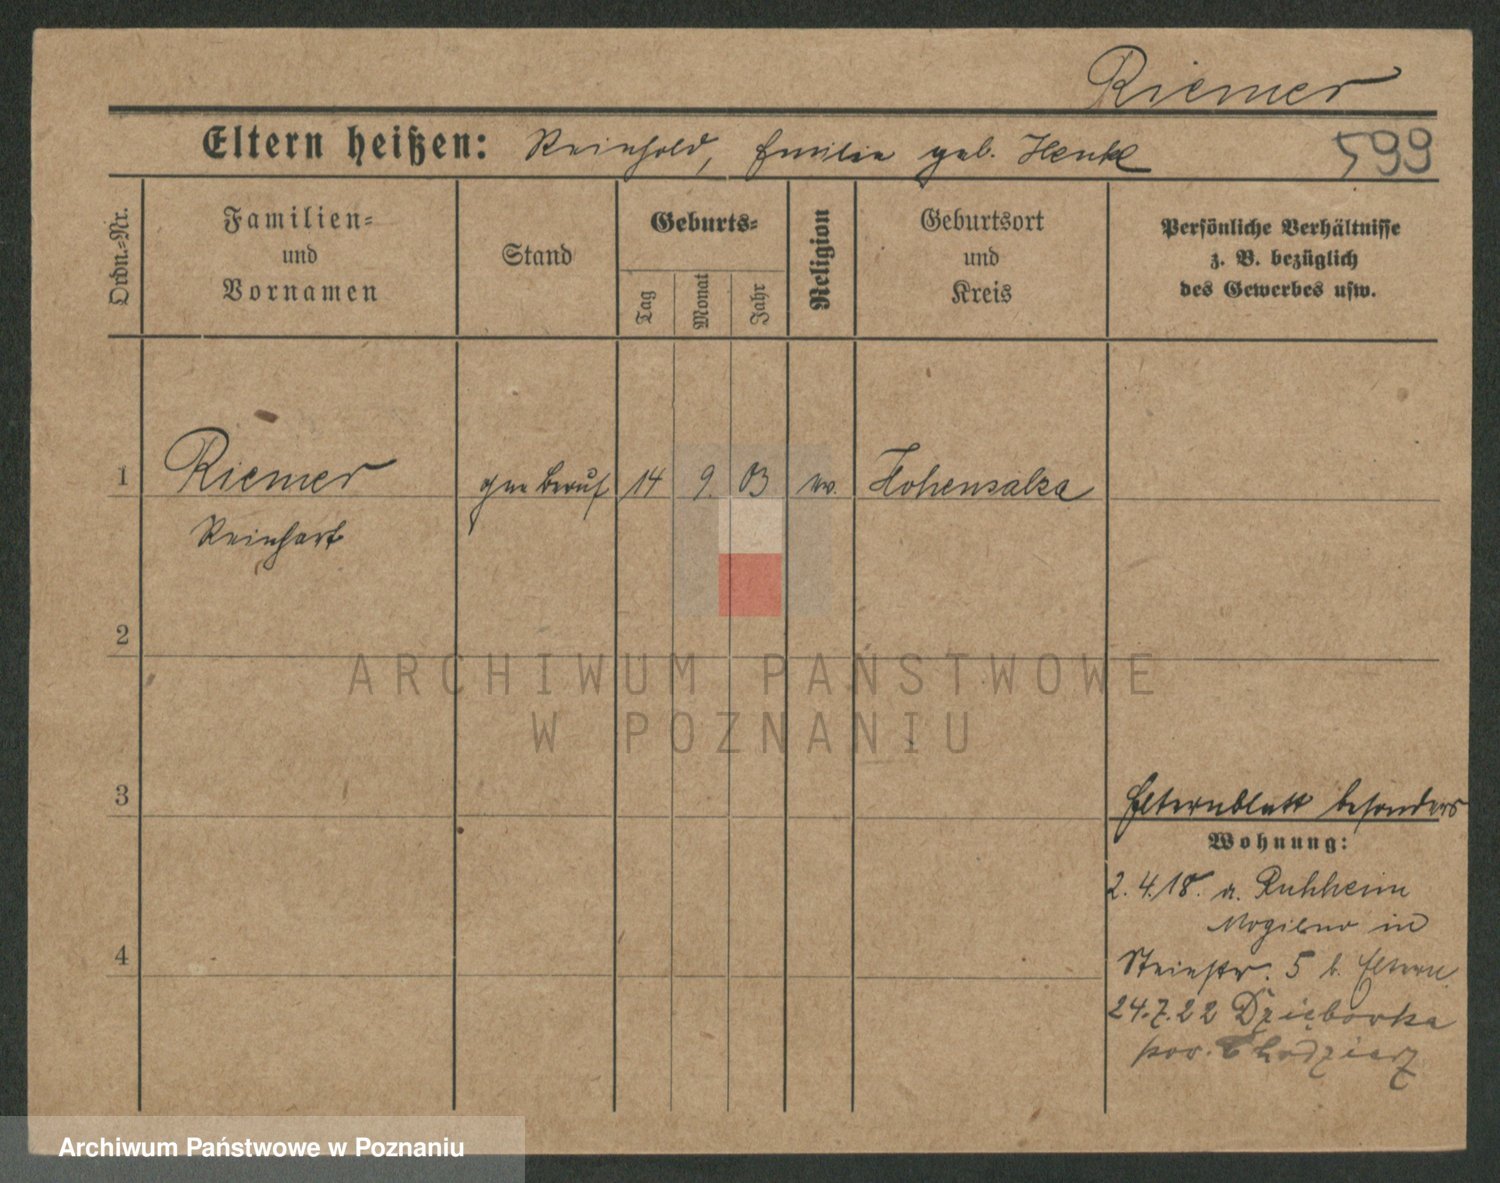 Riemer
Eltern heißen: Reinhold, Emilie geb. Henke
599
Ordn.-Nr.
Familien-
und
Vornamen
Stand
Geburts-
Tag
Monat
Jahr
Religion
Geburtsort
und
Kreis
Persönliche Verhältnisse
z. B. bezüglich
des Gewerbes usw.
1 Riemer Beruf 14 9. 03 ev. Hohensalza
Reinhart
2
ARCHIWUM PAŃSTWOWE
W POZNANIU
3
Elternblatt besonders
Wohnung:
2. 4. 18. a. Ruhheim
Mogilno in
4
Steinstr. 5 b. Eltern
24.7.22 Dziębowka
pow. Chodzież
Archiwum Państwowe w Poznaniu